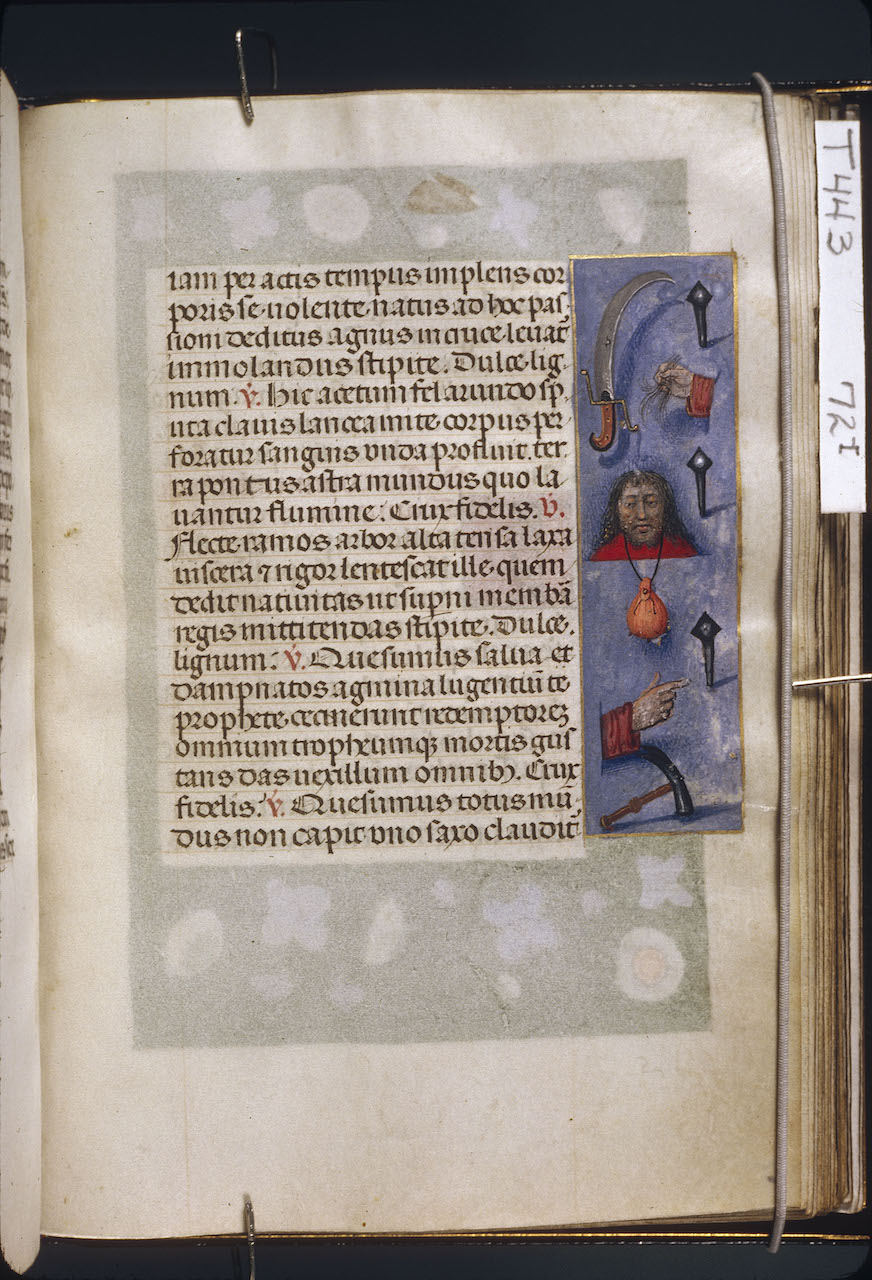 iam per actis tempus implens cor
poris se uolente natus ad hoc pas
sioni deditus agnus in cruce leuat᷑
immolandus stipite. Dulce lig
num. v̄. Hic acetum fel arundo sp̄
uta clauis lancea mite corpus per
foratur sanguis vnda profluit. ter
ra pontus astra mundus quo la
uantur flumine. Crux fidelis. v̄.
Flecte ramos arbor alta tensa laxa
uiscera ⁊ rigor lentescat ille quem
dedit natiuitas ut sup̄ni membr̄a
regis mitti tendas stipite. Dulce
lignum. v̄. Quesumus salua et
dampnatos agmina lugentiū te
prophete cecinerunt redemptorēꝫ
omnium tropheumqꝫ mortis gus
tans das uexillum omnibꝫ. Crux
fidelis. v̄. Quesumus totus mū
dus non capit vno saxo claudit᷑
T443
72r